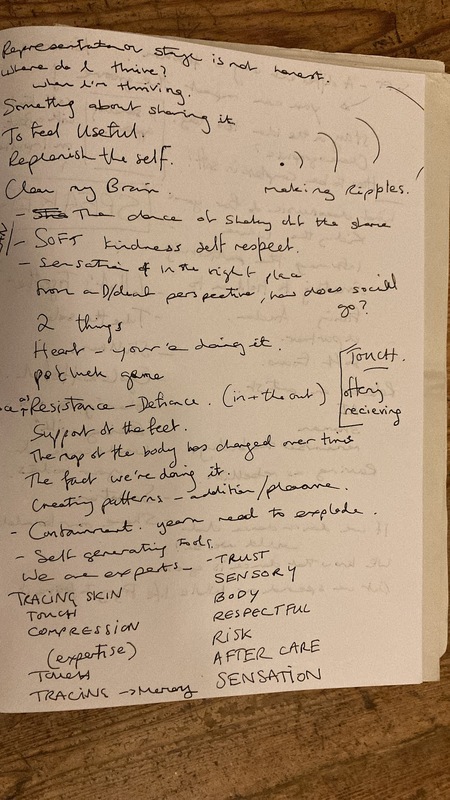 Representation on stage is not honest.
where do I thrive?
when I'm thriving.
Something about sharing it
To feel useful.
Replenish the self.
Clean my Brain.
making Ripples.
- The dance of shaking off the shame
- SOFT kindness self respect.
- Sensation of in the right place
From a D/deaf perspective, how does social
go?
2 things
Heart - your'e doing it.
potluck game
Resistance - Defiance. (in + the out)
TOUCH.
offering
recieving
Support of the feet.
The map of the body has changed over time
The fact we're doing it.
Creating patterns - addition/pleasure.
- Containment. yearn need to explode.
- Self generating tools.
We are experts -
- TRUST
SENSORY
BODY
RESPECTFUL
RISK
AFTER CARE
SENSATION
TRACING SKIN
TOUCH
COMPRESSION
(expertise)
Touch
TRACING → Memory